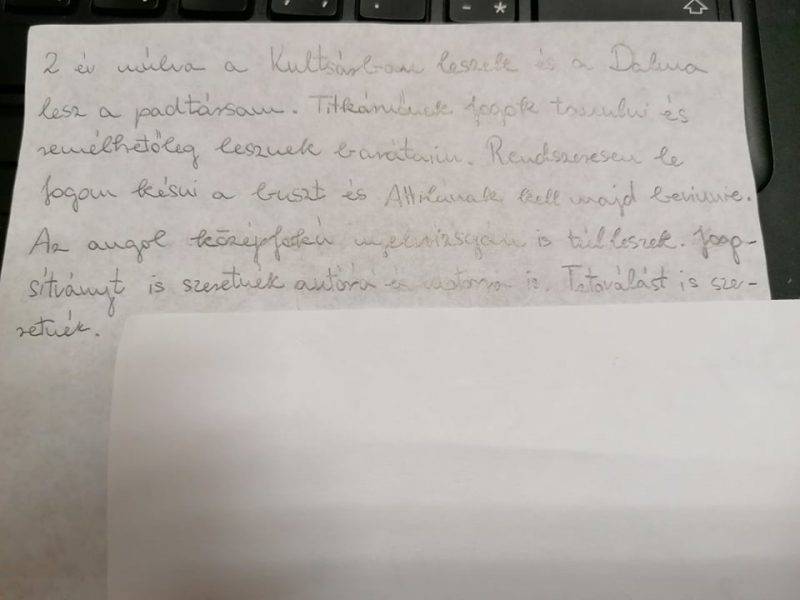 2 év múlva a Kultsárban leszek és a Dalma
lesz a padtársam. Titkárnőnek fogok tanulni és
remélhetőleg lesznek barátaim. Rendszeresen le
fogom késni a buszt és Attilának kell majd bevinnie.
Az angol középfokú nyelvvizsgán is túl leszek. Jogo-
sítványt is szeretnék autóra és motorra is. Tetoválást is sze-
retnék.